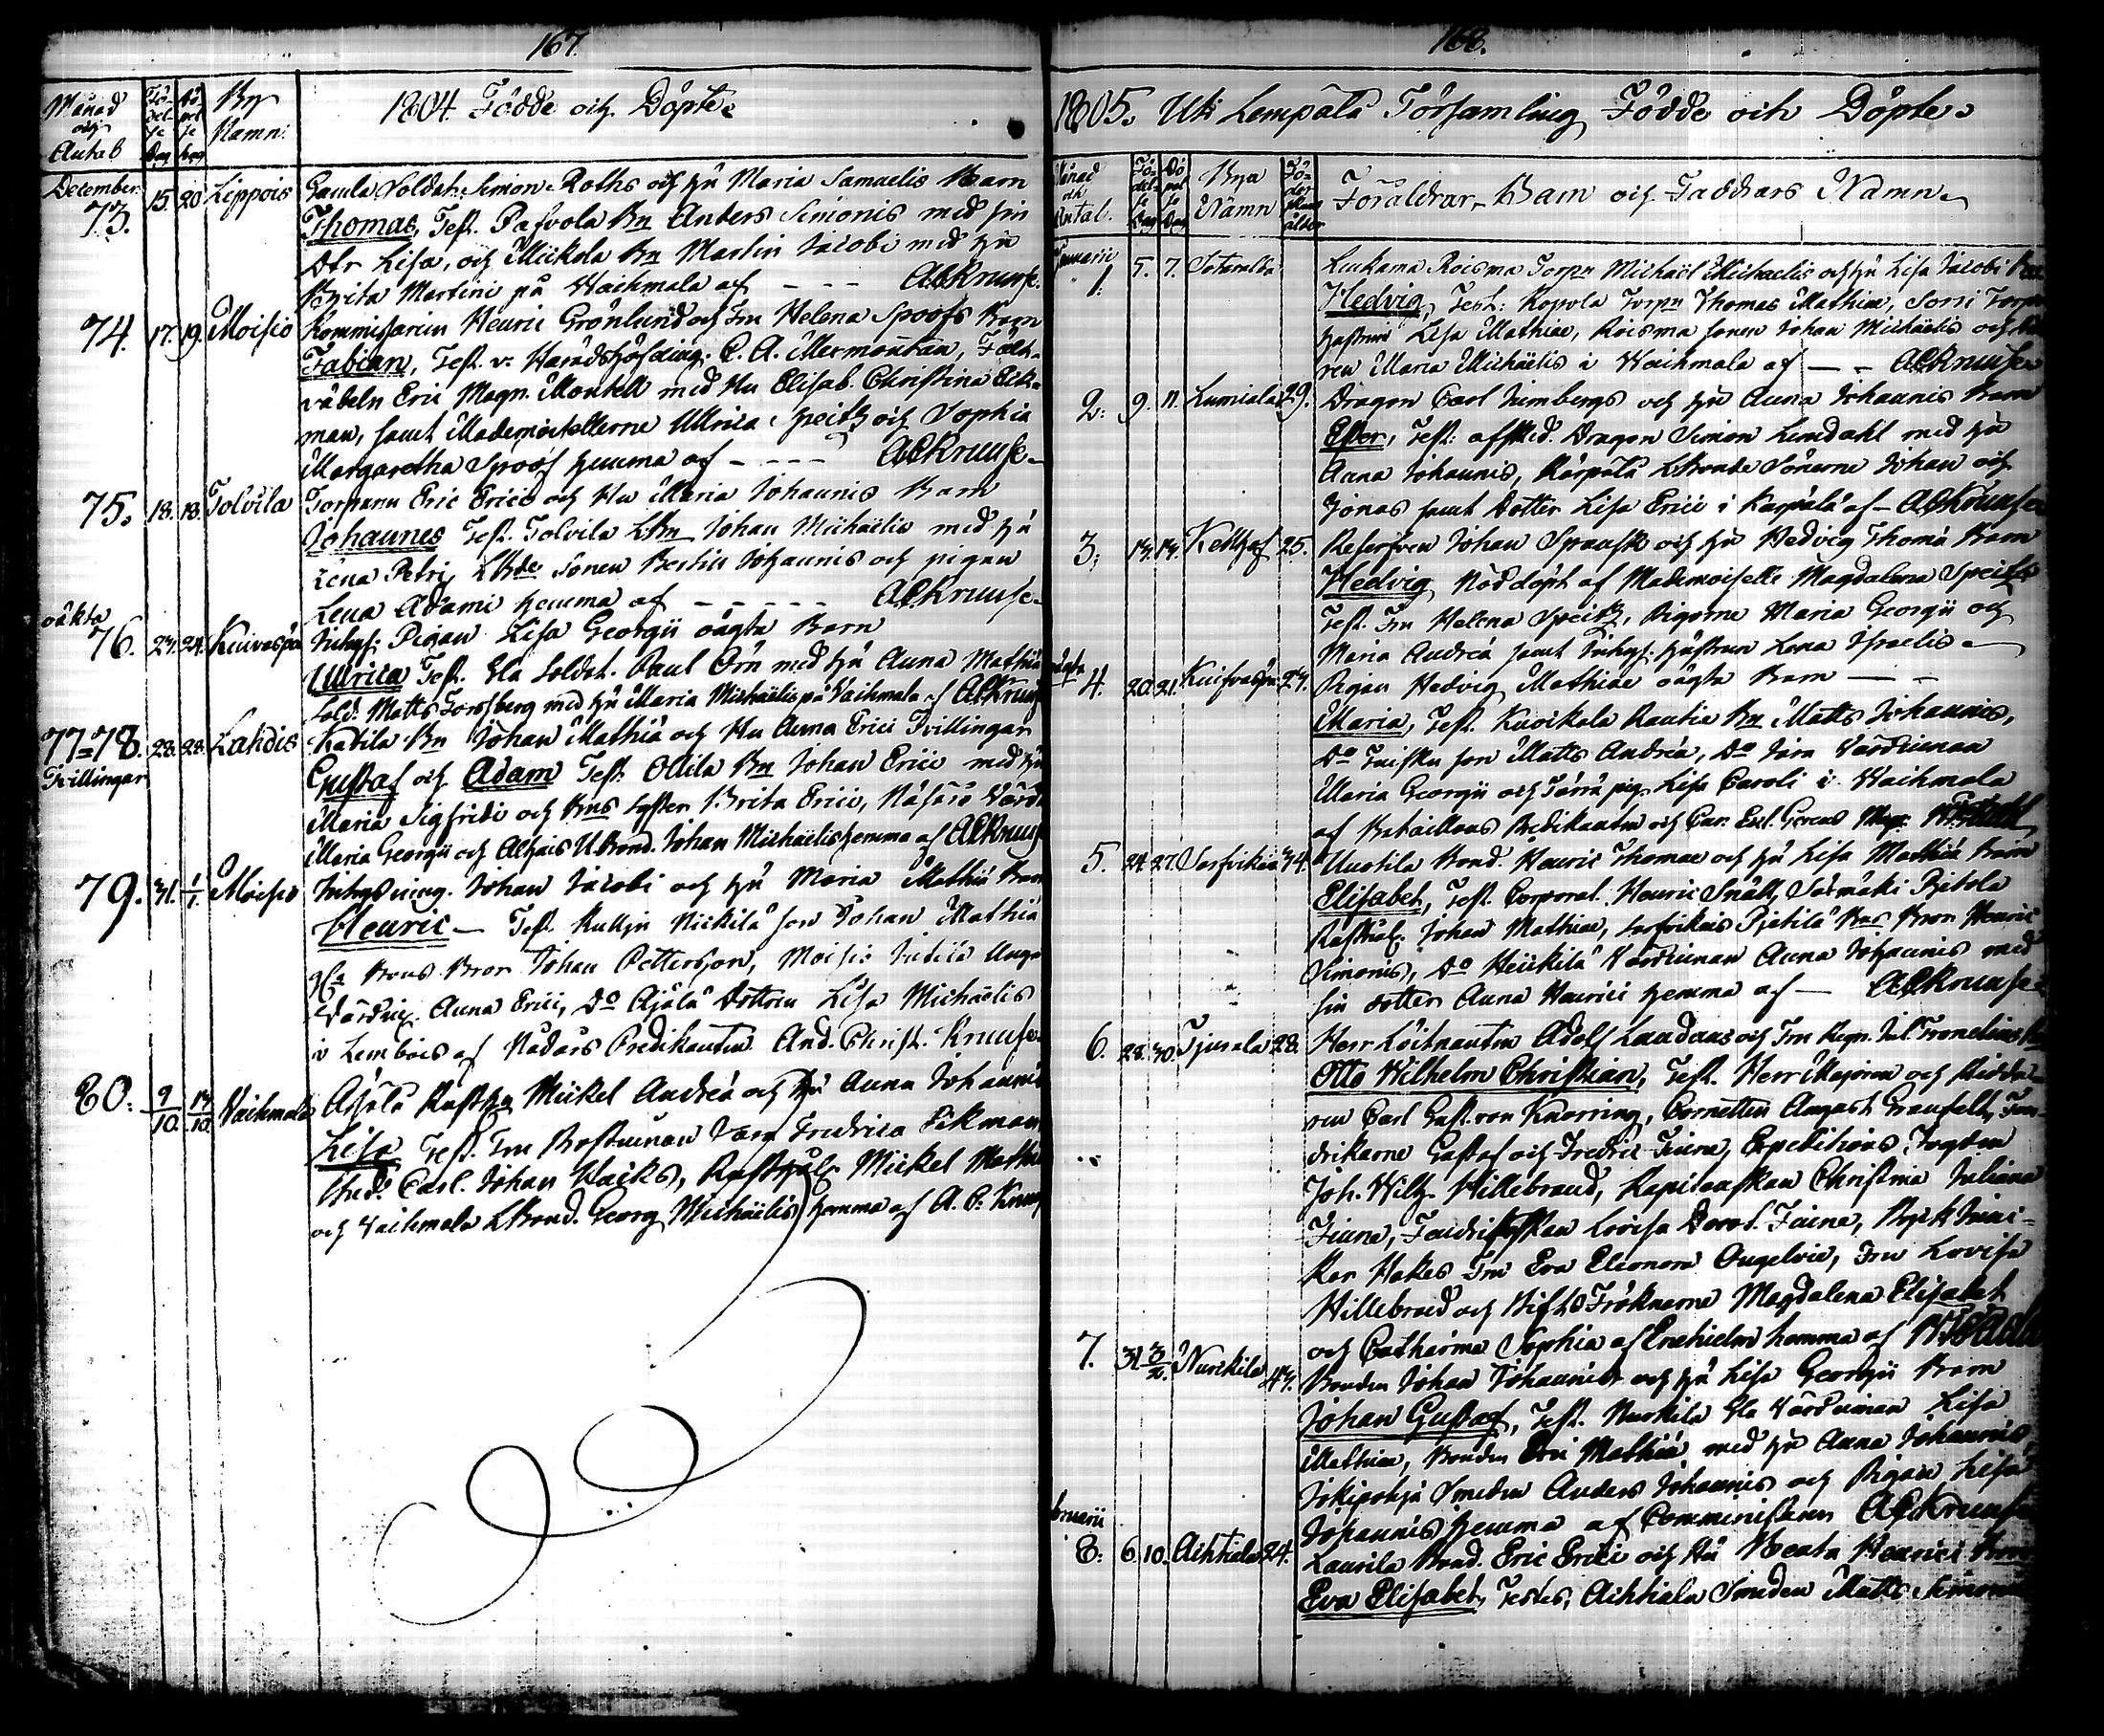 167.
Månad och Antal
Födelse Dag
Döpelse Dag
By Namn:
1804 Födde och Döpte.
December
73. 15. 20 Lippois Gamla Soldat. Simon Roths och hu Maria Samuelis Barn
Thomas, Test. Pafvola Bn Anders Simonis med sin
Dtr Lisa, och Mickola Bn Martin Jacobi med hu
Brita Martini på Waihmala af - - - ACKruuse.
74. 17. 19. Moisio Kommissarien Henric Grönlund och Fru Helena Spoofs Barn
Fabian, Test. v. Häradshöfding. C. A. Mermontan, Fält-
väbeln Eric Magn. Montell med Hu Elisab. Christina Eek-
man, samt Mademoisellerne Ullrica Speitz och Sophia
Margaretha Spoof hemma af - - - - ACKruuse.
75. 18. 18. Tolvila Torparen Eric Erici och Hu Maria Johannis Barn
Johannes Test. Tolvila LBn Johan Michaelis med hu
Lena Petri, LBde sonen Bertill Johannis och pigan
Lena Adami hemma af - - - - - ACKruuse.
oäkta
76. 23. 24. Kuivaspä Inhys: Pigan Lisa Georgii oägta Barn
Ullrica Test. Gla Soldat. Paul Örn med hu Anna Mathiæ
Sold. Matts Forssberg med hu Maria Michaelis på Vaihmala af ACKruus
77=78. 28. 28. Lahdis Katila Bn Johan Mathiæ och Hu Anna Erici Tvillingar
Tvillingar Gustaf och Adam Test. Ollila Bn Johan Erici med hu
Maria Sigfridi och Bns Syster Brita Erici, Näfärö Värd.
Maria Georgii och Alhais U.Bond. Johan Michaelis hemma af ACKruus
79. 31. 1/1. Moisio Inhysning. Johan Jacobi och hu Maria Mathiæ Barn
Henric — Test. Kullju Nickilä son Johan Mathiæ
Bons Bror Johan Pettersson, Moisio Unga
Värdin. Anna Erici, Do Ajälä Dottren Lisa Michaelis
i Lembois af Nådårs Predikanten And. Christ. Kruuse.
80. 9/10 14/10 Vaihmala Ajälä Rusthn Mickel Andreæ och hu Anna Johannis
Lisa Test. Fru Vara Fredrica Eekman
Stud. Carl. Johan Hacks, Rusthål. Mickel Mathi
och Vaihmala LBond. Georg Michaelis hemma af A. C. Kruus
168.
1805. Uti Lempälä Församling Födde och Döpte.
Månad och Antal.
Födelse Dag
Döpelse Dag
Bya Namn
Moderskans ålder
Föräldrar, Barn och Faddrars Namn.
Januarii
1. 5. 7. Sotavalta Leukama Roisma Torpn Michaël Michaelis och hu Lisa Jacobi
Hedvig, Test: Kopola Torpn Thomas Mathiæ, Sorri Torp
hustrun Lisa Mathiæ, Roisma sonen Johan Michaelis och
ren Maria Michaelis i Waihmala af — - ACKruuse
2. 9. 11. Lumiala 29. Dragon Carl Limbergs och hu Anna Johannis Barn
Ester, Test: afsked. Dragon Simon Lindahl med hu
Anna Johannis, Kärpälä LBonde Sönerne Johan och
Jonas samt Dotter Lisa Erici i Karpälä af - ACKruuse
3. 14. 14. Kellhof 25. Reserfven Johan Spansk och hu Hedvig Thomæ Barn
Hedvig Nöddöpt af Mademoiselle Magdalena Speitz
Test. Fru Helena Speitz, Pigorne Maria Georgii och
Maria Andreæ samt Inhys. hustrun Lena Israelis
oägta
4. 20. 21. Kuifvaspä 24. Pigan Hedvig Mathiæ oägta Barn — -
Maria, Test. Kuoikala Rautia Bn Matts Johannis,
Do Taiska son Matts Andreæ, Do Jara Värdinnan
Maria Georgii och Järä pig. Lisa Caroli i Waihmala
af Bataillons Predikanten
5. 24. 27. Sarfvikia 34. Uuotila Bond. Henric Thomae och hu Lisa Mathiæ Barn
Elisabet, Test. Corporal. Henric Snäll, Säimäki Pjetola
Rusthål. Johan Mathiæ, Sarfvikais Pjetilä Bns Bror Henric
Simonis, Do Heickilä Värdinnan Anna Johannis med
sin dotter Anna Henrici hemma af — ACKruuse
6. 28. 30. Tjurala 28. Herr Löitnanten Adolf Laudaus och Fru
Otto Wilhelm Christian, Test. Herr Majoren och Riddar-
ren Carl Gust. von Knorring, Cornetten August Granfelt, Fän-
drikarne Gustaf och Fredric June, Expeditions Fogden
Joh. Wilh. Hillebrand, Kapitenskan Christina Juliana
June, Lovisa Dorod. Juine,
Fru Eva Eleonora Ongelvie, Fru Lovisa
Hillebrand och Fröknarne Magdalena Elisabet
och Catharina Sophia af Enehielm hemma af
7. 31. 3/2. Nurckila 43. Bonden Johan Johannis och hu Lisa Georgii Barn
Johan Gustaf, Test. Nurkila Gla Värdinnan Lisa
Mathiæ, Bonden Mathiæ med hu Anna Johannis,
Jokipohja Smeden Anders Johannis och Pigan Lisa
Johannis hemma af Comministern ACKruuse
bruarii
8. 6. 10. Aihtiala 24. Laurila Bond. Eric Erici och Hu Beata Henrici Barn
Eva Elisabet, Testes, Aihtiala Smeden Matts Simonis